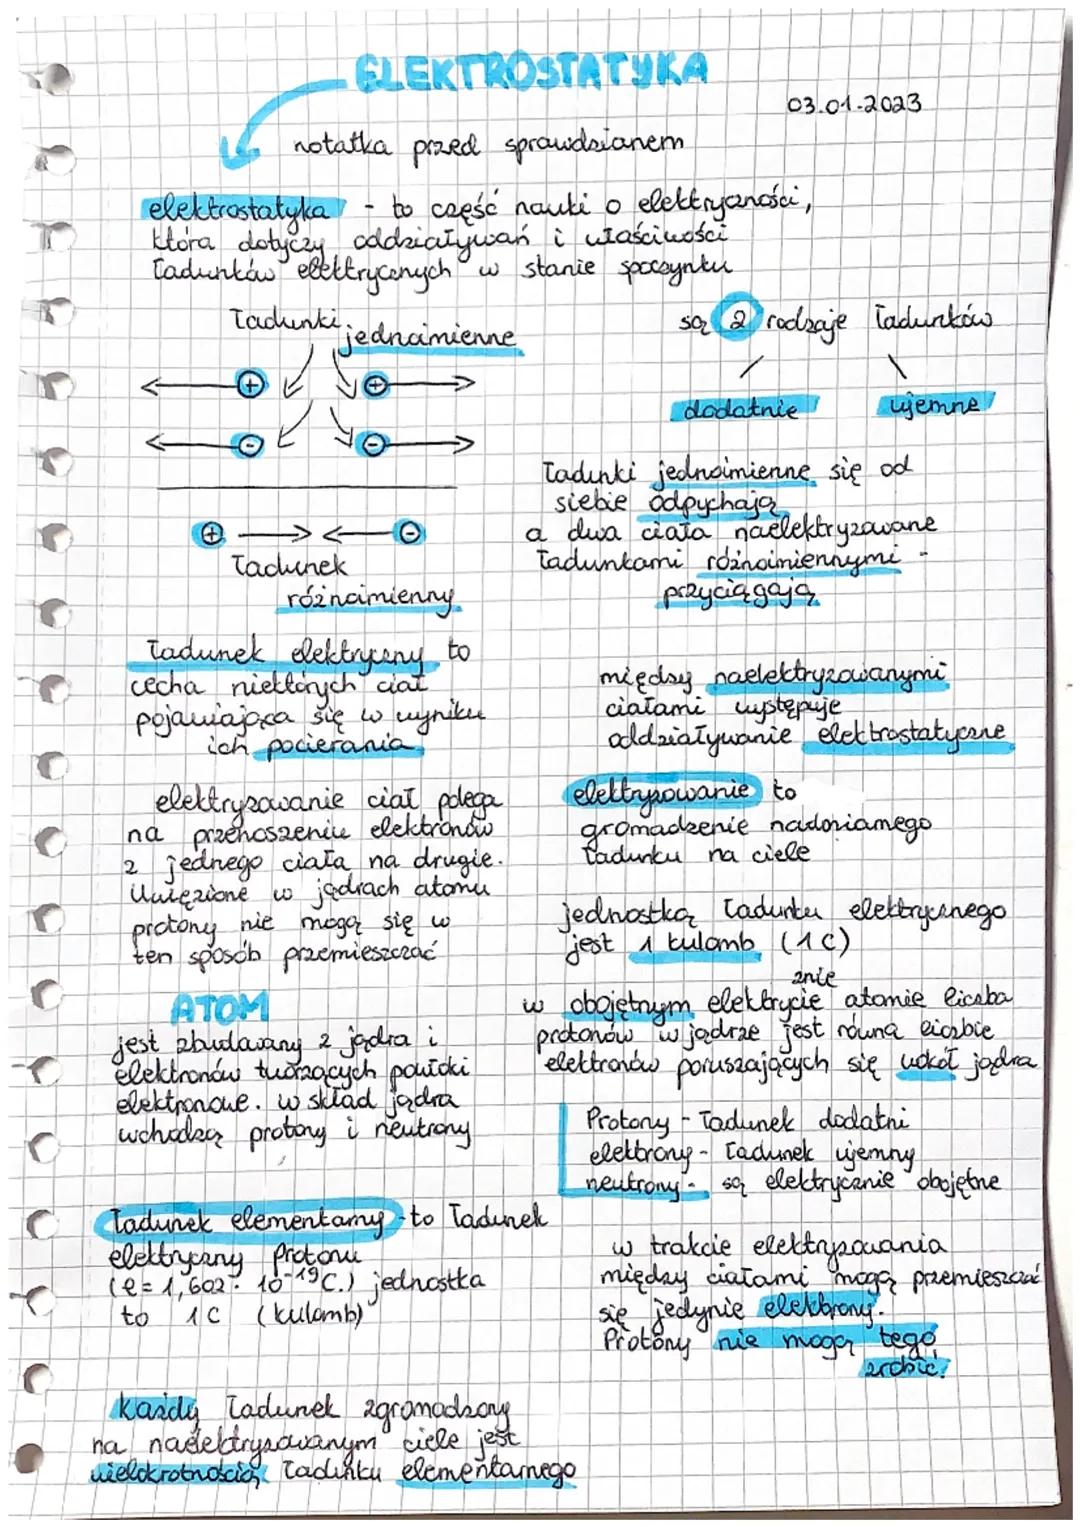 ELEKTROSTATYKA
03.01.2023
notatka przed sprawdzianem
elektrostatyka - to część nauki o elektryczności,
która dotyczy oddziaływań i właściwości
ładunków elektrycznych w stanie spoczynku
ładunki
jednoimienne
+ +
- -
+ -
ładunek
różnoimienny
są 2 rodzaje ładunków
dodatnie ujemne
ładunki jednoimienne się od
siebie odpychają
a dwa ciała naelektryzowane
ładunkami różnoimiennymi -
przyciągają
ładunek elektryczny to
cecha niektórych ciał
pojawiająca się w wyniku
ich pocierania
między naelektryzowanymi
ciałami występuje
oddziaływanie elektrostatyczne
elektryzowanie ciał polega
na przenoszeniu elektronów
z jednego ciała na drugie.
Uwięzione w jądrach atomu
protony nie mogą się w
ten sposób przemieszczać
elektryzowanie to
gromadzenie nadmiarnego
ładunku na ciele
jednostką ładunku elektrycznego
jest 1 kulomb (1C)
ATOM
jest zbudowany z jądra i
elektronów tworzących powłoki
elektronowe. w skład jądra
wchodzą protony i neutrony
znie
w obojętnym elektrycie atomie liczba
protonów w jądrze jest równa liczbie
elektronów poruszających się wokół jądra
Protony - ładunek dodatni
elektrony - ładunek ujemny
neutrony - są elektrycznie obojętne
ładunek elementarny - to ładunek
elektryczny Protonu
(e = 1,602 · 10⁻¹⁹ C.) jednostka
to 1C (kulomb)
w trakcie elektryzowania
między ciałami mogą przemieszczać
się jedynie elektrony.
Protony nie mogą tego
zrobić!
Każdy ładunek zgromadzony
na naelektryzowanym ciele jest
wielokrotnością ładunku elementarnego